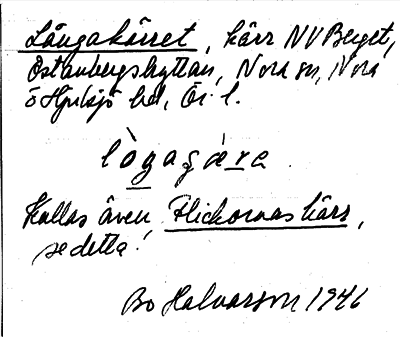 Långakärret, kärr NV Berget,
Östanbergshyttan, Nora sn, Nora
o Hjulsjö hd, Ör. l.
lògagǽrɛ
Kallas även Flickornas kärr,
se detta!
Bo Halvarson 1946